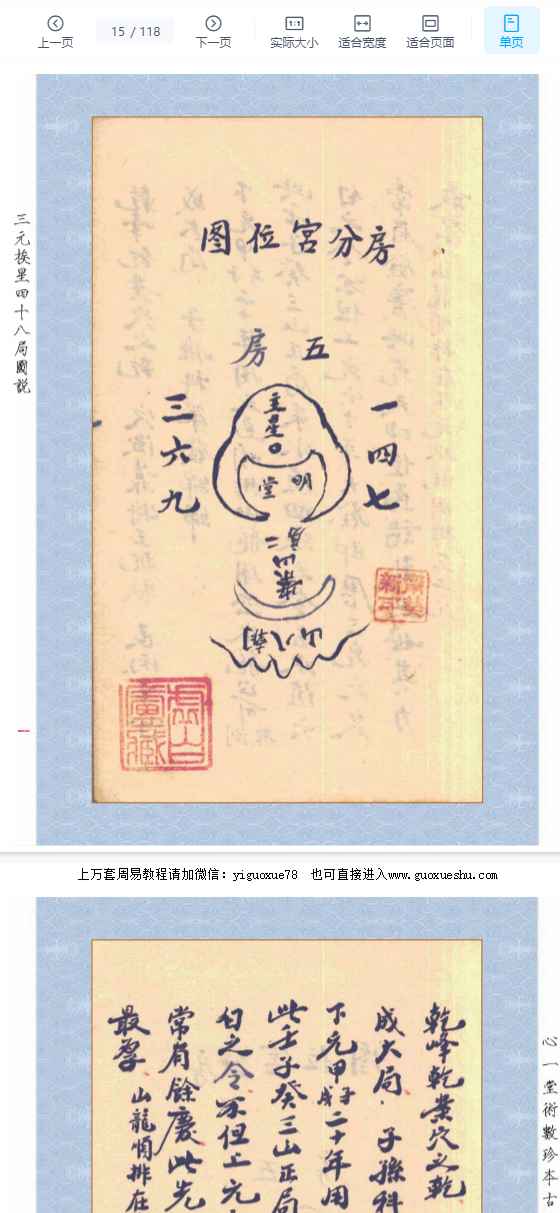 上一页
15 / 118
下一页
实际大小
适合宽度
适合页面
单页
三元挨星四十八局圖説
房分宮位图
五房
一四七
三六九
主星
明堂
二
案山
朝八山
一
上万套周易教程请加微信：yiguoxue78 也可直接进入www.guoxueshu.com
心一堂術數珍本古
乾峰乾業穴之乾
成大局．子孫科
下元甲子戌二十年用
此壬子癸三山正局
白之令不但上元
常有餘慶此先
最孕．山龍順排在